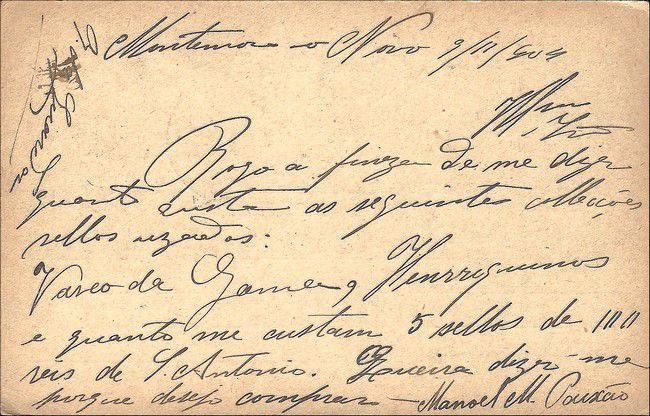 Montemor-o-Novo 9/11/904
Illmo Snr
Rogo a fineza de me dizer
quanto custa as seguintes collecções
sellos uzados:
Vasco da Gama, Henrriquinos
e quanto me custam 5 sellos de 100
réis de S. Antonio. Queira dizer-me
porque desejo comprar - Manoel M. Paixão